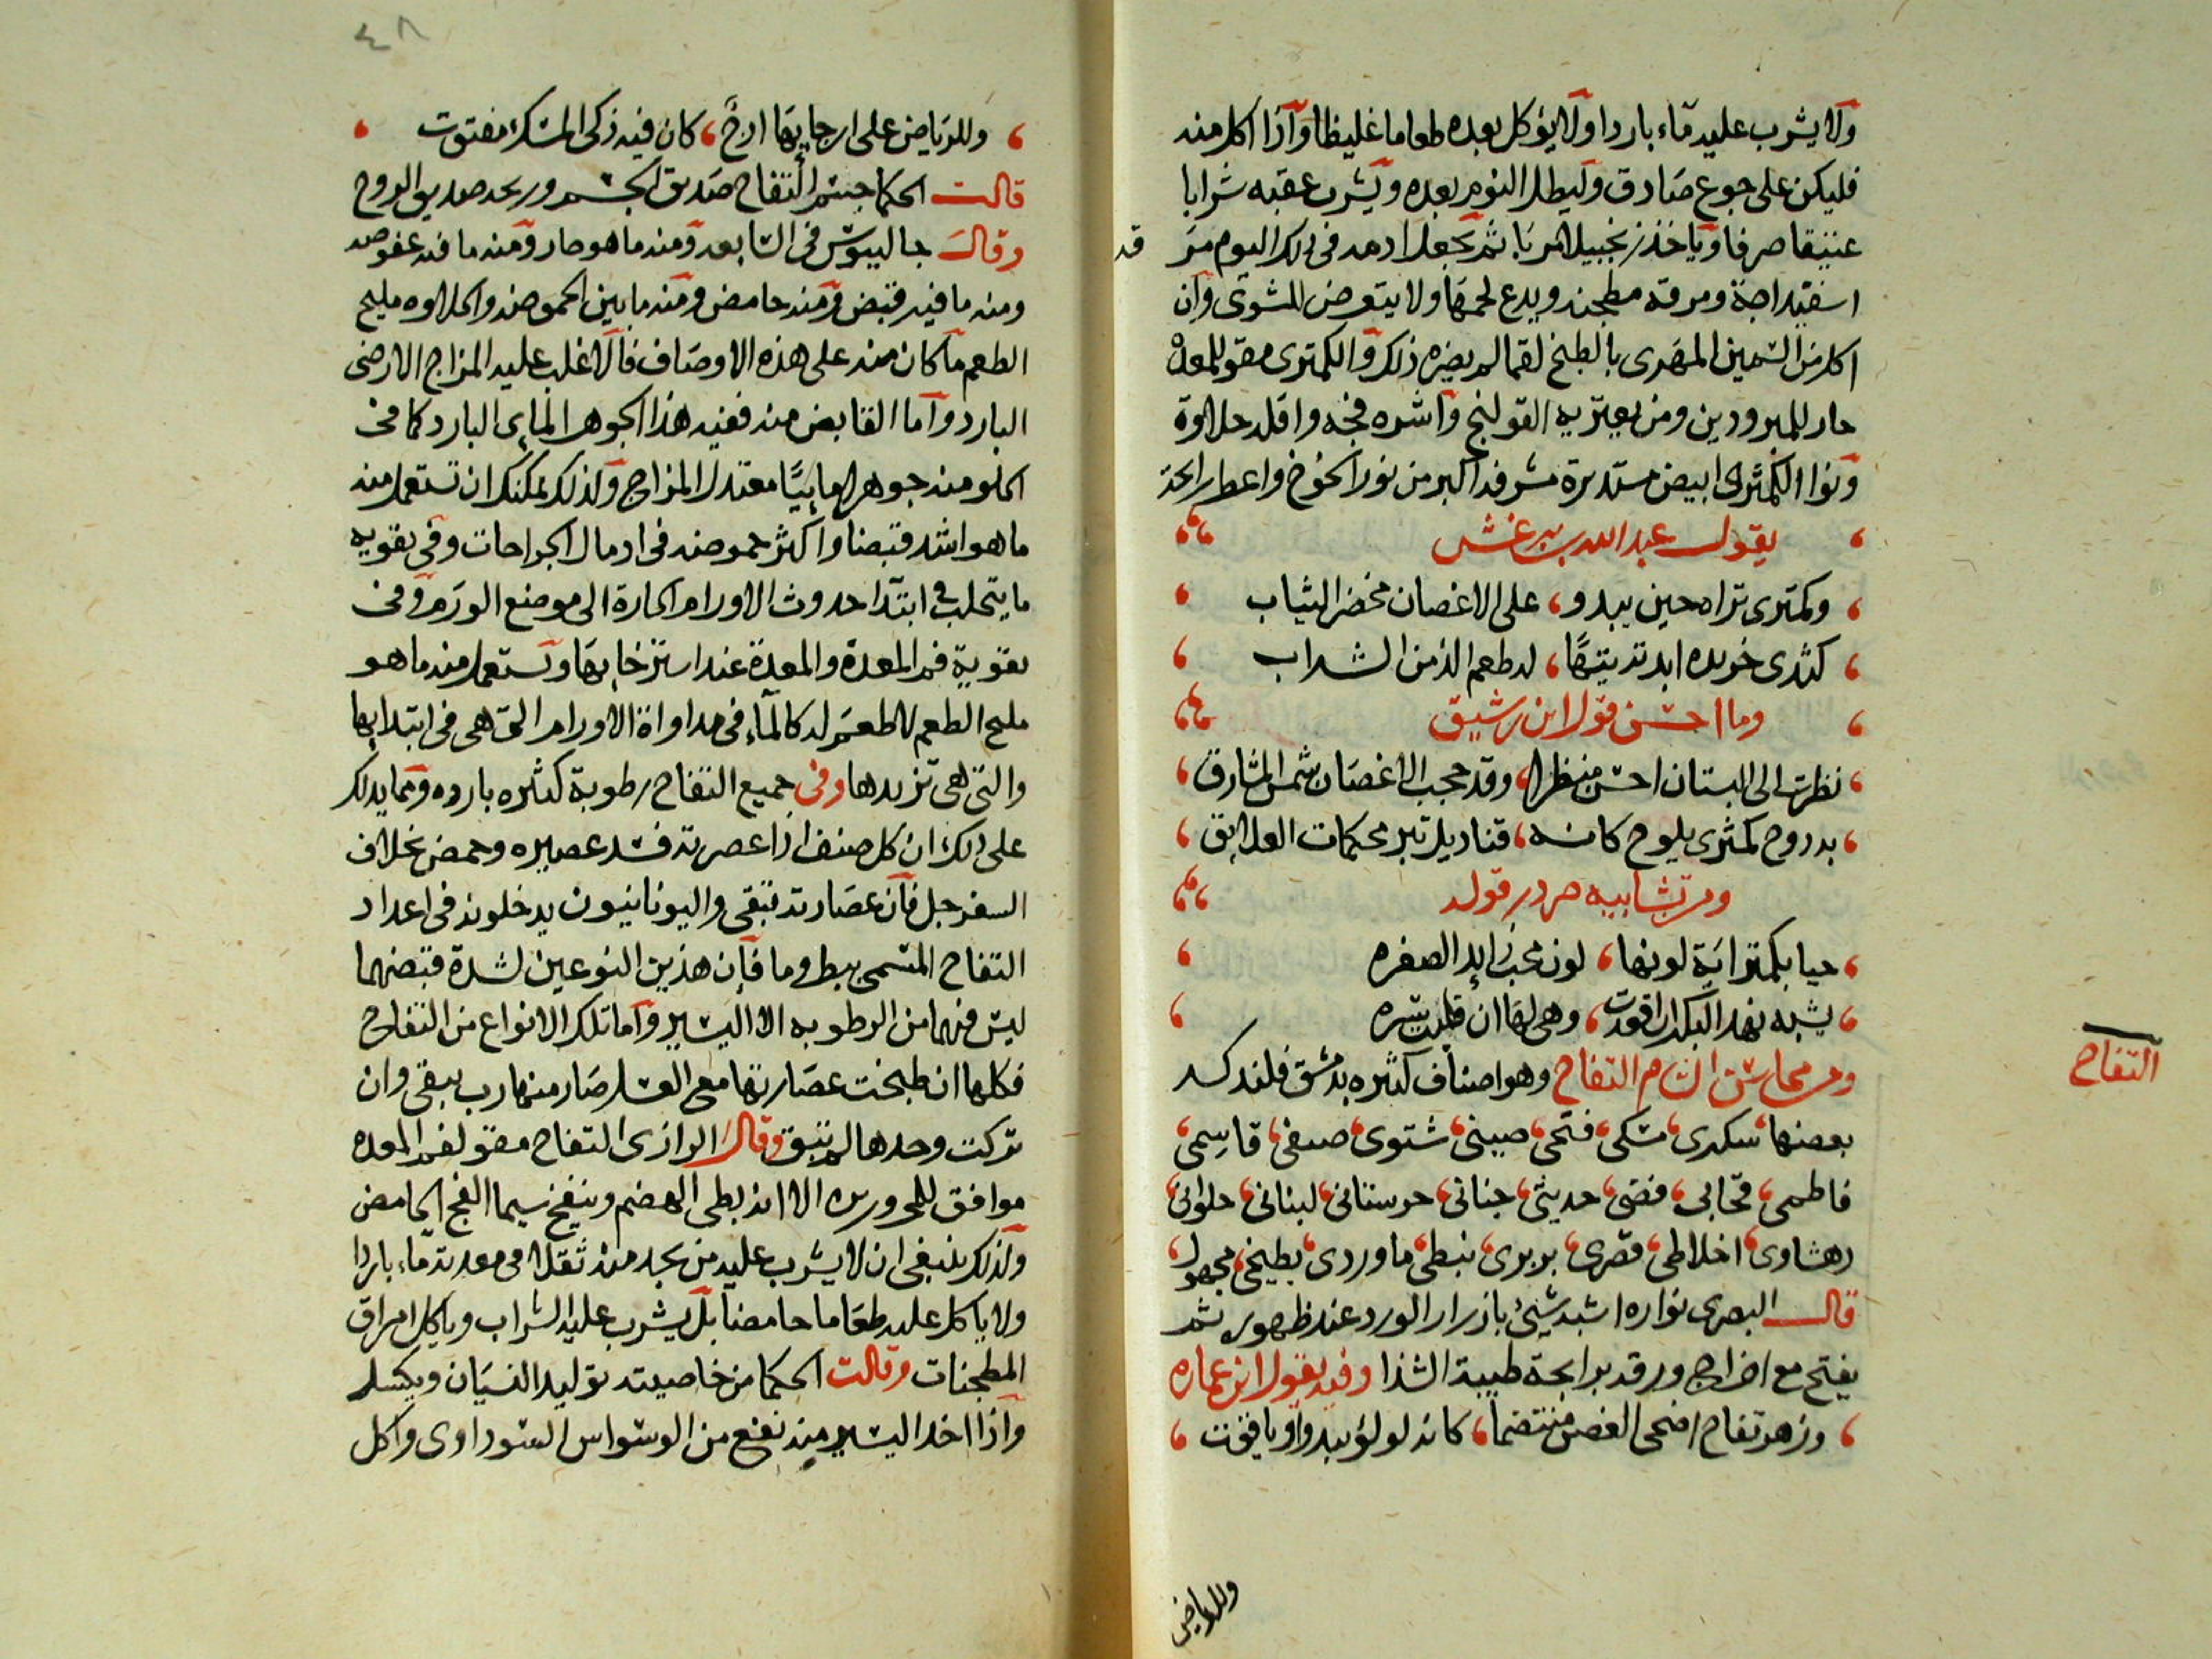 ولا يشرب عليه ماء باردا ولا يؤكل بعده طعاما غليظا واذا اكل منه
فليكن على جوع صادق وليطل النوم بعده ويشرب عقبه شرابا
عتيقا صرفا وياخذ زنجبيلا مربا ثم يجعل ادمه في ذلك اليوم مرقه
اسفيداجة ومرقه مطجنه ويدع لحمها ولا يتعرض للشوى وان
اكل من السمين المهرى بالطبخ لقما لم يضره ذلك والكمترى مقو للمعدة
حار للمبرودين ومن يعتريه القولنج واشره فجه واقله حلاوة
ونوار الكمثرى ابيض مستديرة مشرفه اكبر من نور الخوخ واعطر رايحة
يقول عبد الله بن برغش
وكمترى تراه حين يبدو، على الاغصان مخضر الثياب
كثدى خريده ابدته تيها، له طعم الذ من الشراب
وما احسن قول ابن رشيق
نظرت الى البستان احسن منظر، وقد حجب الاغصان شمس المشارق
به دوح كمثرى يلوح كانه، قناديل تبر محكمات العلايق
ومن تشابيه صردر قوله
حيا بكمتراية لونها، لون محب زايد الصفره
يشبه نهد البكر ان اقعدت، وهي لها ان قلبت سره
ومن محاسن الشام التفاح وهو اصناف كثيره بدمشق فلنذكر
التفاح
بعضها سكرى، مسكى، فتحى، صينى، شتوى، صيفى، قاسمى،
فاطمى، قحابى، فضى، حديثى، جنانى، حرستانى، لبنانى، حلوانى،
رهشاوى، اخلاطى، قصرى، بربرى، نبطى، ماوردى، بطيخى، مجهول،
قال البصرى نواره اشبه شيئ بازرار الورد عند ظهوره ثم
يفتح مع اخراج ورقه برايحة طيبة الشذا وفيه يقول ابن عماره
وزهر تفاح اضحى الغصن منتضما، كانه لولؤ يبدو وياقوت
وللرياض
٤٨
وللرياض على ارجايها ارج، كان فيه ذكى المسك مفتوت
قالت الحكما جسم التفاح صديق الجسم وريحه صديق الروح
وقال جالينوس في السابعه ومنه ما هو حار ومنه ما فيه عفوصه
ومنه ما فيه قبض ومنه حامض ومنه ما بين الحموضه والحلاوه مليح
الطعم ما كان منه على هذه الاوصاف فالاغلب عليه المزاج الارضى
البارد واما القابض منه ففيه هذا الجوهر المايى البارد كما فى
الحلو منه جوهرا مابيًا معتدل المزاج ولذلك يمكنك ان تستعمل منه
ما هو اشد قبضا واكثر حموضه فى ادمال الجراحات وفى تقويه
ما يتحلب في ابتدا حدوث الاورام الحارة الى موضع الورم وفى
تقوية فم المعدة والمعدة عند استرخايها وتستعمل منه ما هو
مليح الطعم لا طعم له كالماء فى مداواة الاورام التى هى فى ابتدايها
والتى هى تزيدها وفى جميع التفاح رطوبة كثيره بارده ومما يدلك
على ذلك ان كل صنف اذا عصرته فسد عصيره وحمض بخلاف
السفرجل فان عصارته تبقى واليونانيون يدخلونه فى اعداد
التفاح المسمى ببطروما فان هذين النوعين لشدة قبضهما
ليس فيهما من الرطوبه الا اليسير واما تلك الانواع من التفاح
فكلها ان طبخت عصارتها مع العسل صار منها رب يبقى وان
تركت وحدها لم تبق وقال الرازى التفاح مقو لفم المعده
موافق للمحرورين الا انه بطى الهضم وينفخ سيما الفج الحامض
ولذلك ينبغى ان لا يشرب عليه من يجد منه ثقلا فى معدته ماء باردا
ولا ياكل عليه طعاما حامضا بل يشرب عليه الشراب وياكل امراق
المطجنات وقالت الحكما من خاصيته توليد النسيان ويكسل
واذا اخد اليسير منه نفع من الوسواس السوداوى واكل